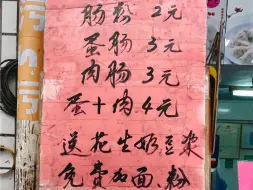 肠粉 2元
蛋肠 3元
肉肠 3元
蛋+肉 4元
送花生奶豆浆
免费加面.粉